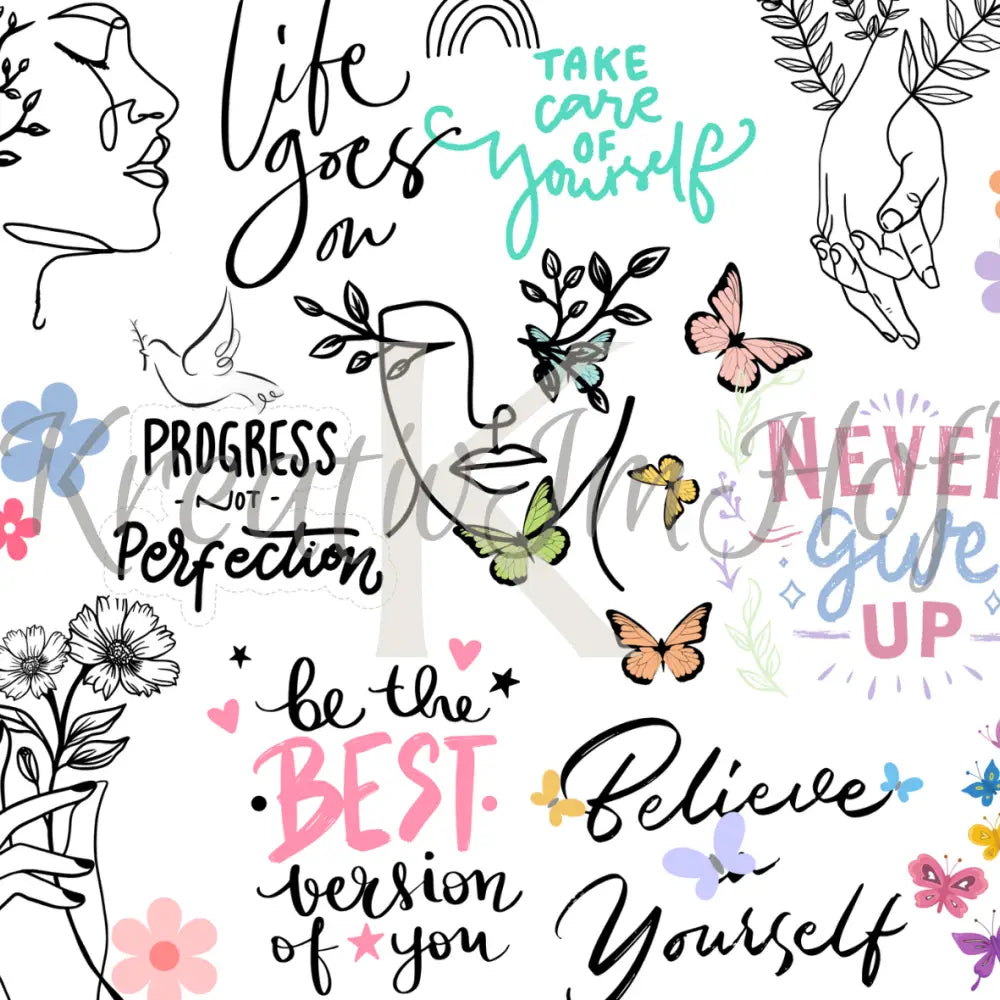 life
goes
on
TAKE
care
OF
yourself
PROGRESS
- NOT -
Perfection
NEVER
give
UP
Kreativ In Hof
K
be the
BEST
version
of you
Believe
in
Yourself